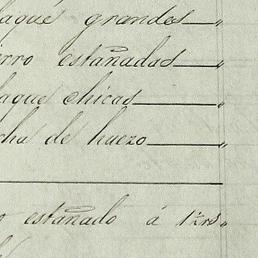 laque grandes „
erro estañadas „
laque chicas „
cha de huezo „
estañado á 1½ rs „